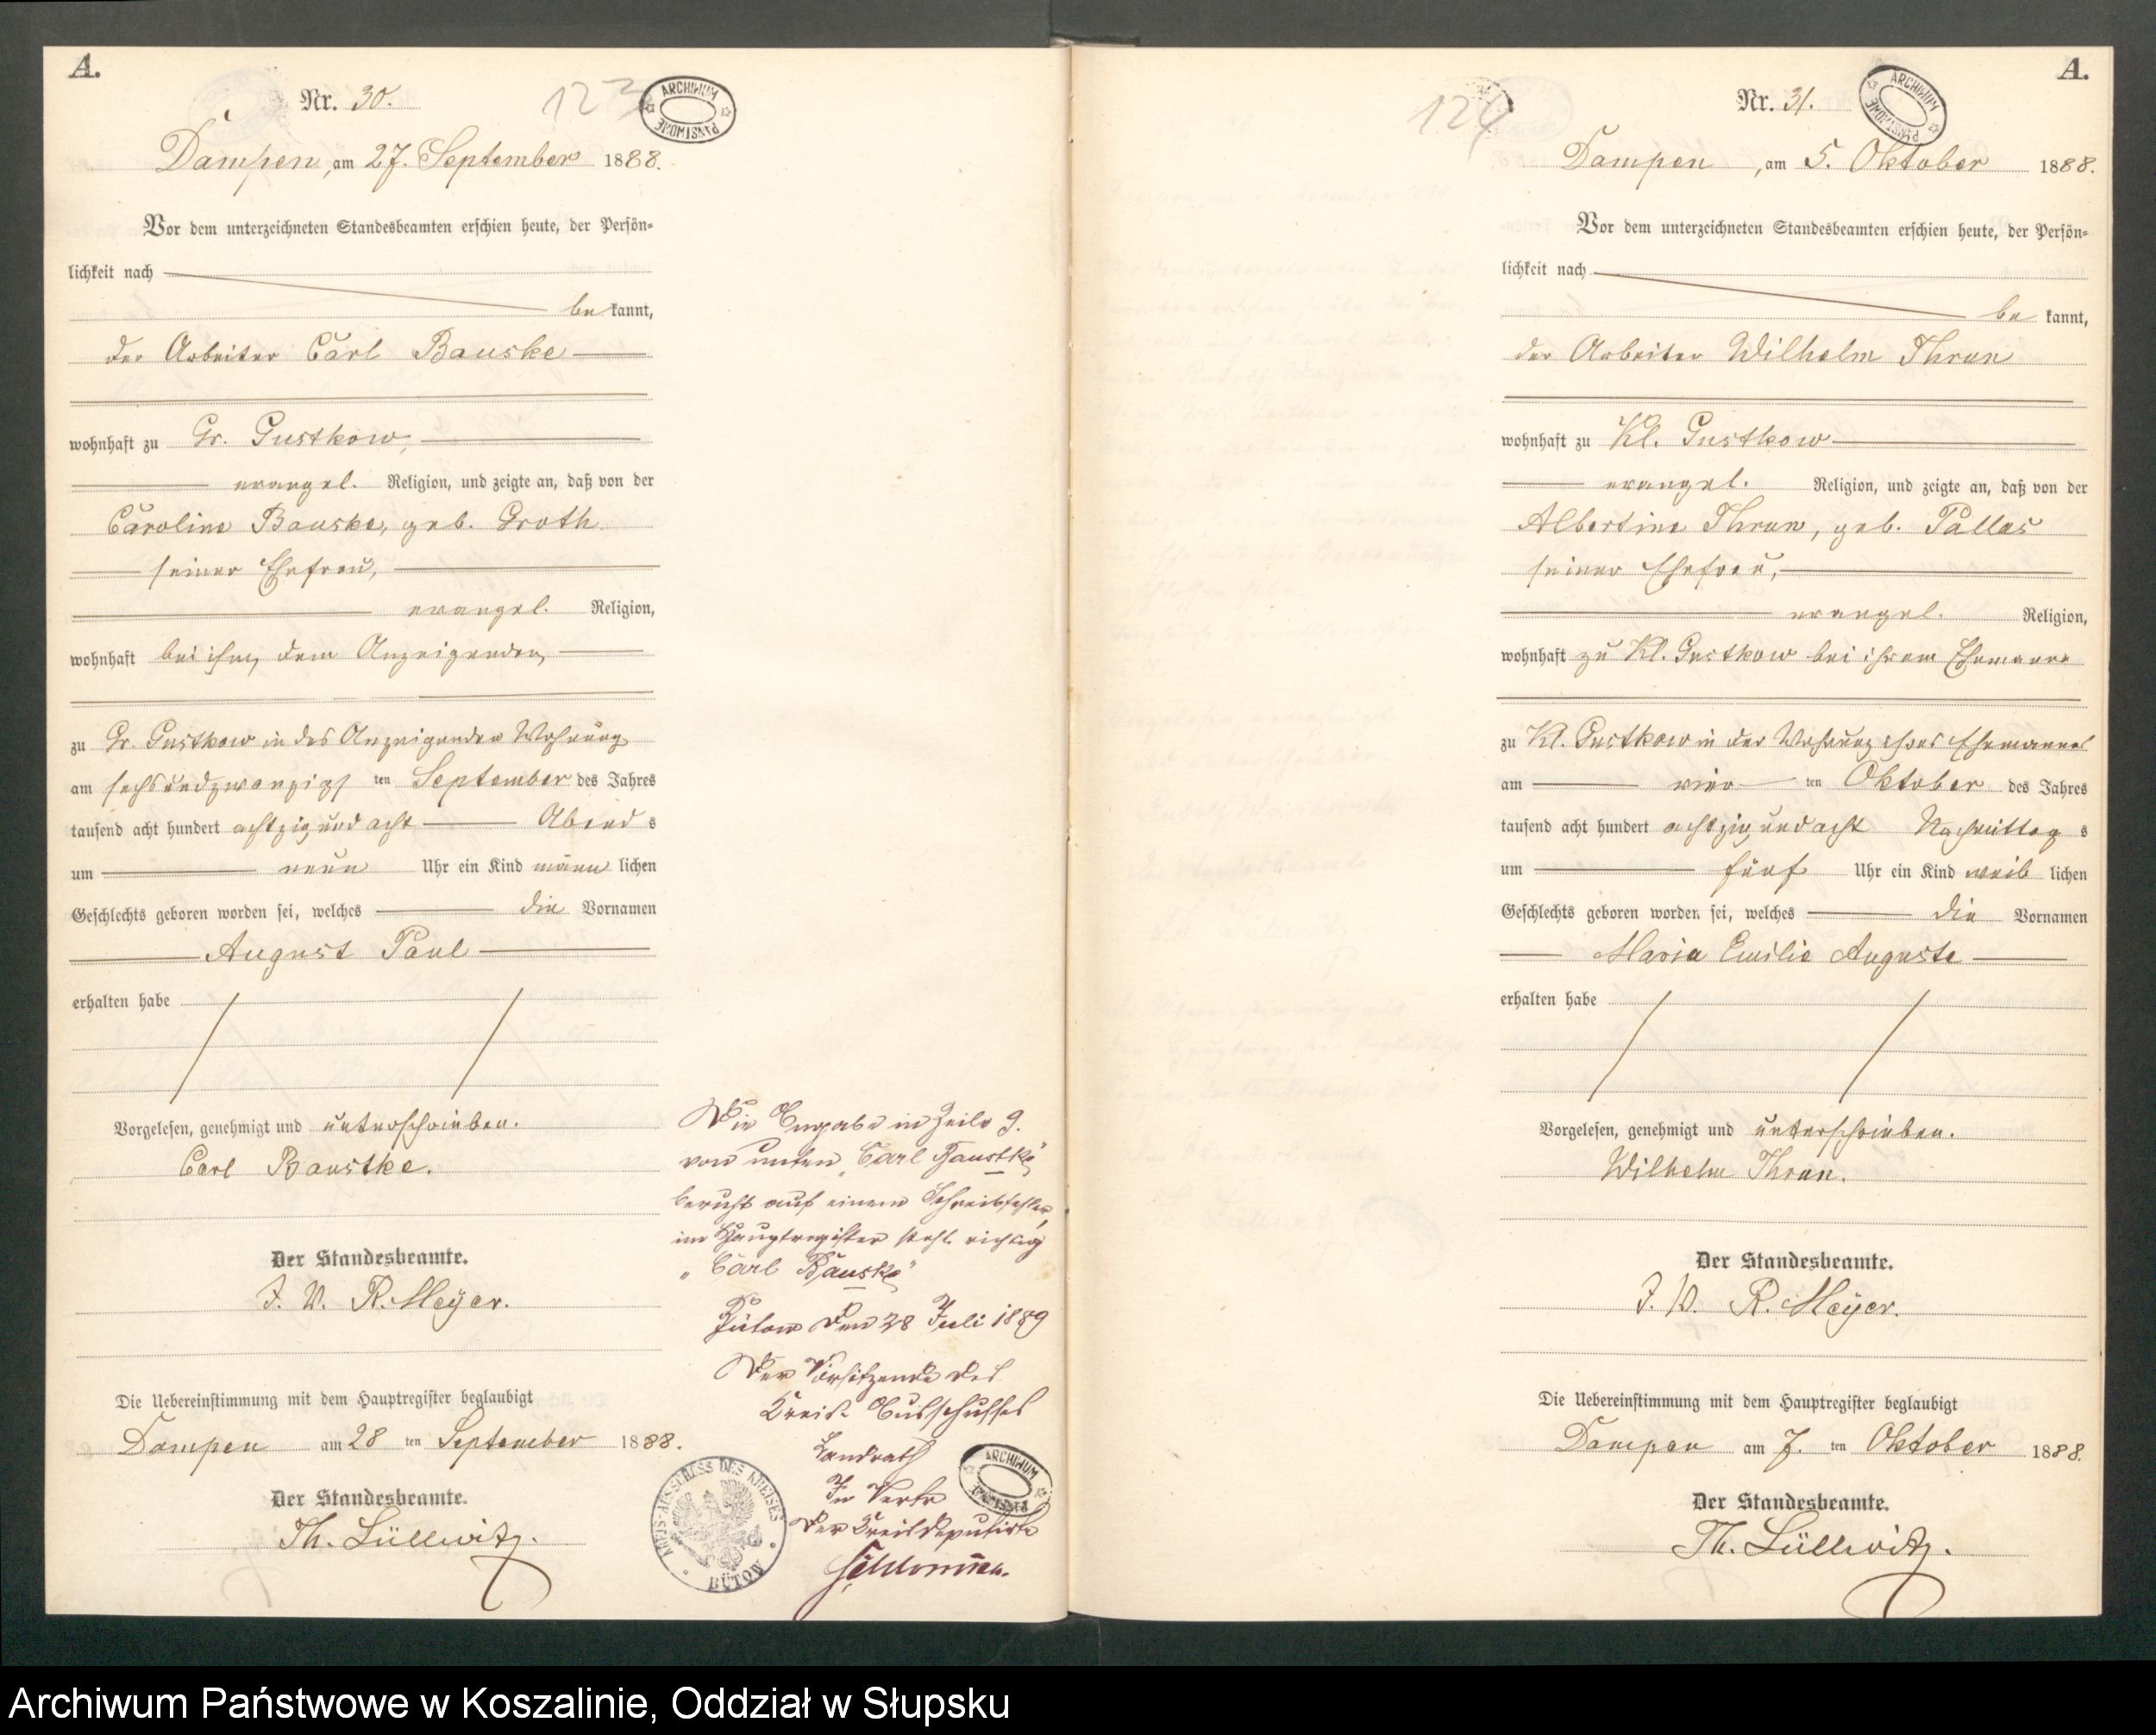 A.
Nr. 30.
123
ARCHIWUM PAŃSTWOWE
Dampen, am 27. September 1888.
Vor dem unterzeichneten Standesbeamten erschien heute, der Persön-
lichkeit nach
be kannt,
der Arbeiter Carl Bauske
wohnhaft zu Gr. Gustkow,
evangel. Religion, und zeigte an, daß von der
Caroline Bauske, geb. Groth
seiner Ehefrau,
evangel. Religion,
wohnhaft bei ihm, dem Anzeigenden,
zu Gr. Gustkow in des Anzeigenden Wohnung
am sechsundzwanzigs ten September des Jahres
tausend acht hundert achtzig und acht Abend s
um neun Uhr ein Kind männ lichen
Geschlechts geboren worden sei, welches die Vornamen
August Paul
erhalten habe
Vorgelesen, genehmigt und unterschrieben.
Carl Baustke.
Der Standesbeamte.
J. V. R. Meyer.
Die Uebereinstimmung mit dem Hauptregister beglaubigt
Dampen am 28 ten September 1888.
Der Standesbeamte.
Th. Lüllwitz.
Die Angabe in Zeile 9.
von unten „Carl Baustke"
beruht auf einem Schreibfehler,
im Hauptregister steht richtig
„Carl Bauske"
Bütow den 28 Juli 1889
Der Vorsitzende des
Kreis-Ausschusses
Landrath
In Vertr
Der Kreisdeputirte
KREIS-AUSSCHUSS DES KREISES BÜTOW
ARCHIWUM PAŃSTWOWE
A.
Nr. 31.
124
ARCHIWUM PAŃSTWOWE
Dampen, am 5. Oktober 1888.
Vor dem unterzeichneten Standesbeamten erschien heute, der Persön-
lichkeit nach
be kannt,
der Arbeiter Wilhelm Thrun
wohnhaft zu Kl. Gustkow
evangel. Religion, und zeigte an, daß von der
Albertine Thrun, geb. Pallas
seiner Ehefrau,
evangel. Religion,
wohnhaft zu Kl. Gustkow bei ihrem Ehemanne
zu Kl. Gustkow in der Wohnung ihres Ehemannes
am vier ten Oktober des Jahres
tausend acht hundert achtzig und acht Nachmittag s
um fünf Uhr ein Kind weib lichen
Geschlechts geboren worden sei, welches die Vornamen
Maria Emilie Auguste
erhalten habe
Vorgelesen, genehmigt und unterschrieben.
Wilhelm Thrun.
Der Standesbeamte.
J. V. R. Meyer.
Die Uebereinstimmung mit dem Hauptregister beglaubigt
Dampen am 7. ten Oktober 1888.
Der Standesbeamte.
Th. Lüllwitz.
Archiwum Państwowe w Koszalinie, Oddział w Słupsku